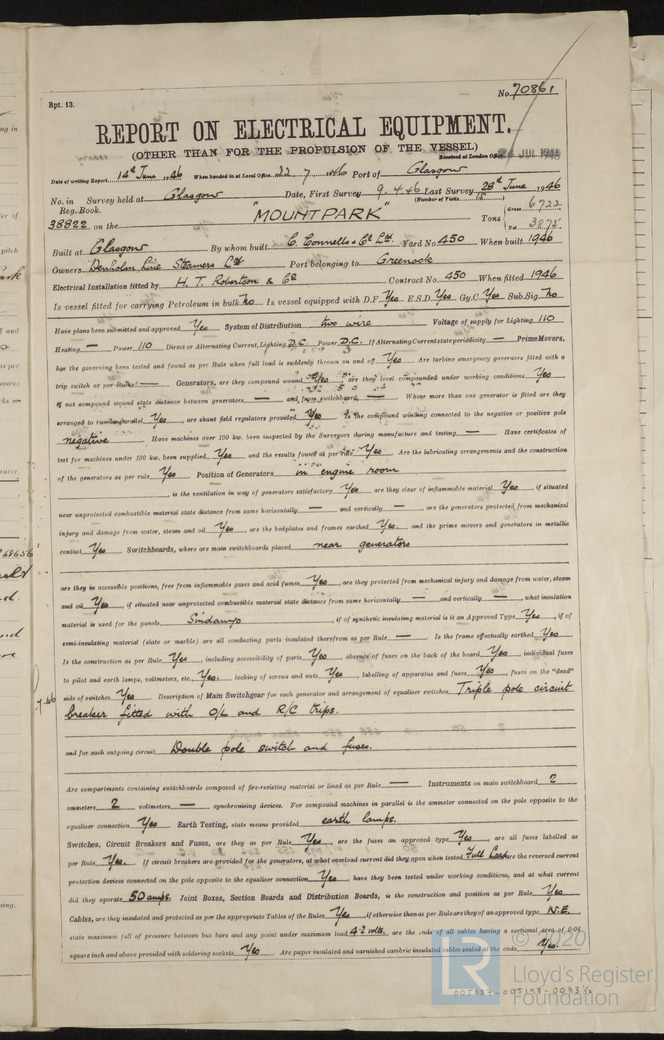 No. 70861
Rpt. 13.
REPORT ON ELECTRICAL EQUIPMENT.
(OTHER THAN FOR THE PROPULSION OF THE VESSEL)
Received at London Office JUL 1946
Date of writing Report 14th June 1946 When handed in at Local Office 22. 7. 1946 Port of Glasgow
No. in Survey held at Glasgow Date, First Survey 9. 4. 46 Last Survey 28th June 1946
Reg. Book. (Number of Visits 15)
38822 on the "MOUNTPARK" Tons { Gross 6722
Net 3875
Built at Glasgow By whom built C. Connell & Co Ltd. Yard No. 450 When built 1946
Owners Denholm Line Steamers Ltd Port belonging to Greenock
Electrical Installation fitted by H. T. Robertson & Co Contract No. 450 When fitted 1946
Is vessel fitted for carrying Petroleum in bulk No Is vessel equipped with D.F. Yes E.S.D. Yes Gy.C. Yes Sub.Sig. No
Have plans been submitted and approved Yes System of Distribution two wire Voltage of supply for Lighting 110
Heating — Power 110 Direct or Alternating Current, Lighting D.C Power D.C. If Alternating Current state periodicity — Prime Movers,
has the governing been tested and found as per Rule when full load is suddenly thrown on and off Yes Are turbine emergency governors fitted with a
trip switch as per Rule — Generators, are they compound wound Yes, are they level compounded under working conditions Yes,
if not compound wound state distance between generators — and from switchboard — Where more than one generator is fitted are they
arranged to run in parallel Yes, are shunt field regulators provided Yes Is the compound winding connected to the negative or positive pole
negative Have machines over 100 kw. been inspected by the Surveyors during manufacture and testing — Have certificates of
test for machines under 100 kw. been supplied Yes and the results found as per rule Yes Are the lubricating arrangements and the construction
of the generators as per rule Yes Position of Generators in engine room
, is the ventilation in way of generators satisfactory Yes, are they clear of inflammable material Yes, if situated
near unprotected combustible material state distance from same horizontally — and vertically —, are the generators protected from mechanical
injury and damage from water, steam and oil Yes, are the bedplates and frames earthed Yes. and the prime movers and generators in metallic
contact Yes Switchboards, where are main switchboards placed near generators
are they in accessible positions, free from inflammable gases and acid fumes Yes, are they protected from mechanical injury and damage from water, steam
and oil Yes, if situated near unprotected combustible material state distance from same horizontally — and vertically —, what insulation
material is used for the panels Sindanyo, if of synthetic insulating material is it an Approved Type Yes, if of
semi-insulating material (slate or marble) are all conducting parts insulated therefrom as per Rule — Is the frame effectually earthed Yes
Is the construction as per Rule Yes, including accessibility of parts Yes, absence of fuses on the back of the board Yes, individual fuses
to pilot and earth lamps, voltmeters, etc., Yes, locking of screws and nuts Yes, labelling of apparatus and fuses Yes, fuses on the "dead"
side of switches Yes Description of Main Switchgear for each generator and arrangement of equaliser switches Triple pole circuit
breaker fitted with O/L and R/C trips.
and for each outgoing circuit Double pole switch and fuses.
Are compartments containing switchboards composed of fire-resisting material or lined as per Rule — Instruments on main switchboard 2
ammeters 2 voltmeters — synchronising devices. For compound machines in parallel is the ammeter connected to the pole opposite to the
equaliser connection Yes Earth Testing, state means provided earth lamps.
Switches, Circuit Breakers and Fuses, are they as per Rule Yes, are the fuses an approved type Yes, are all fuses labelled as
per Rule Yes. If circuit breakers are provided for the generators, at what overload current did they open when tested Full Load are the reversed current
protection devices connected on the pole opposite to the equaliser connection Yes, have they been tested under working conditions, and at what current
did they operate 50 amps. Joint Boxes, Section Boards and Distribution Boards, is the construction and position as per Rule Yes
Cables, are they insulated and protected as per the appropriate Tables of the Rules Yes, if otherwise than as per Rule are they of an approved type N.E.
state maximum fall of pressure between bus bars and any point under maximum load 4.2 volts. are the ends of all cables having a sectional area of 0.01
square inch and above provided with soldering sockets Yes Are paper insulated and varnished cambric insulated cables sealed at the ends Yes.
© 2020
LR
Lloyd's Register
Foundation